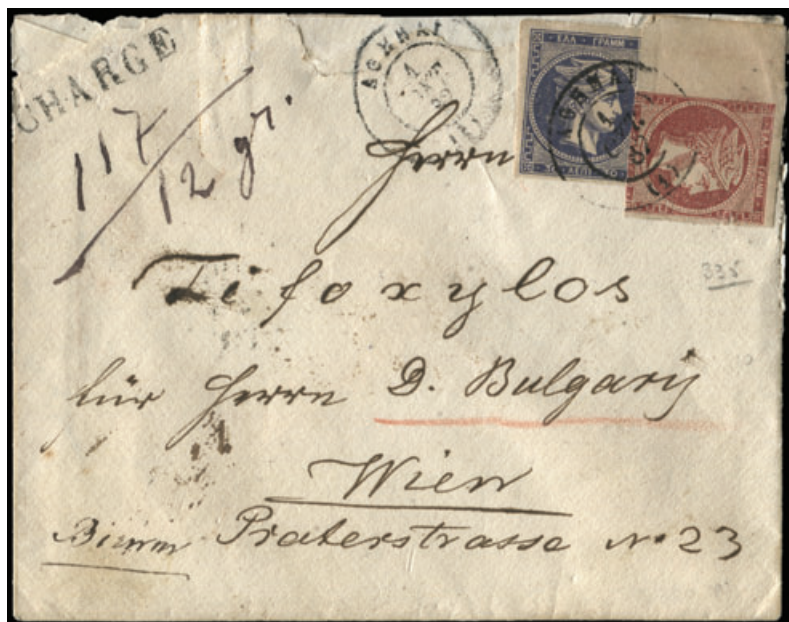 CHARGE
117/12 gr.
ΑΘΗΝΑΙ
(1)
ΕΛΛ ΓΡΑΜΜ
ΑΘΗΝΑΙ
(1)
Herrn
Tifoxylos
für Herrn D. Bulgaris
335
Wien
Praterstrasse No 23